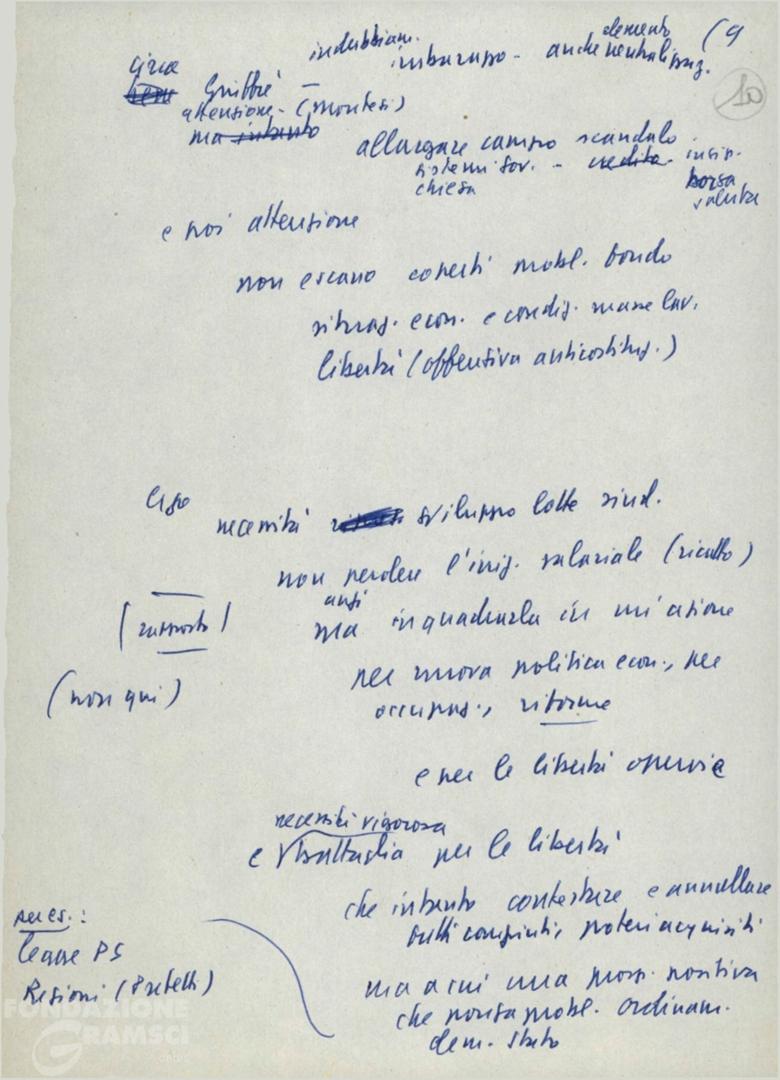 indubbiam. imbarazzo - anche elemento neutralizzaz. (9
10
circa Giuffrè
attensione - (Montesi)
ma intanto
allargare campo scandalo
sistemi gov. - credito
chiesa
borsa
valuta
e noi attensione
non escano coperti probl. fondo
situaz. econ. e condiz. masse lav.
libertà (offensiva anticostituz.)
necessità sviluppo lotte sind.
non perdere l'iniz. salariale (ricatto)
anzi
(rapporto) ma inquadrarla in un'azione
per nuova politica econ., per
(non qui)
occupaz., riforme
e per le libertà operaie
necessità vigorosa
e battaglia per le libertà
che intanto contestare e annullare
per es.: tutti compiuti, poteri acquisiti
legge PS
ma a cui una pross. positiva
Regioni (Pretetti)
che ponga probl. ordinam.
dem. stato
FONDAZIONE
GRAMSCI